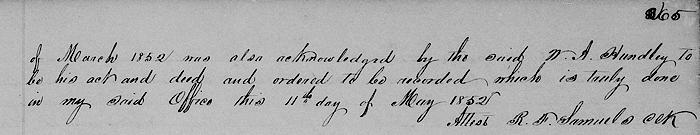 365
of March 1852 was also acknowledged by the said W. A. Hundley to
be his act and deed and ordered to be recorded which is truly done
in my said Office this 11th day of May 1852
Attest R. F. Samuels Clk